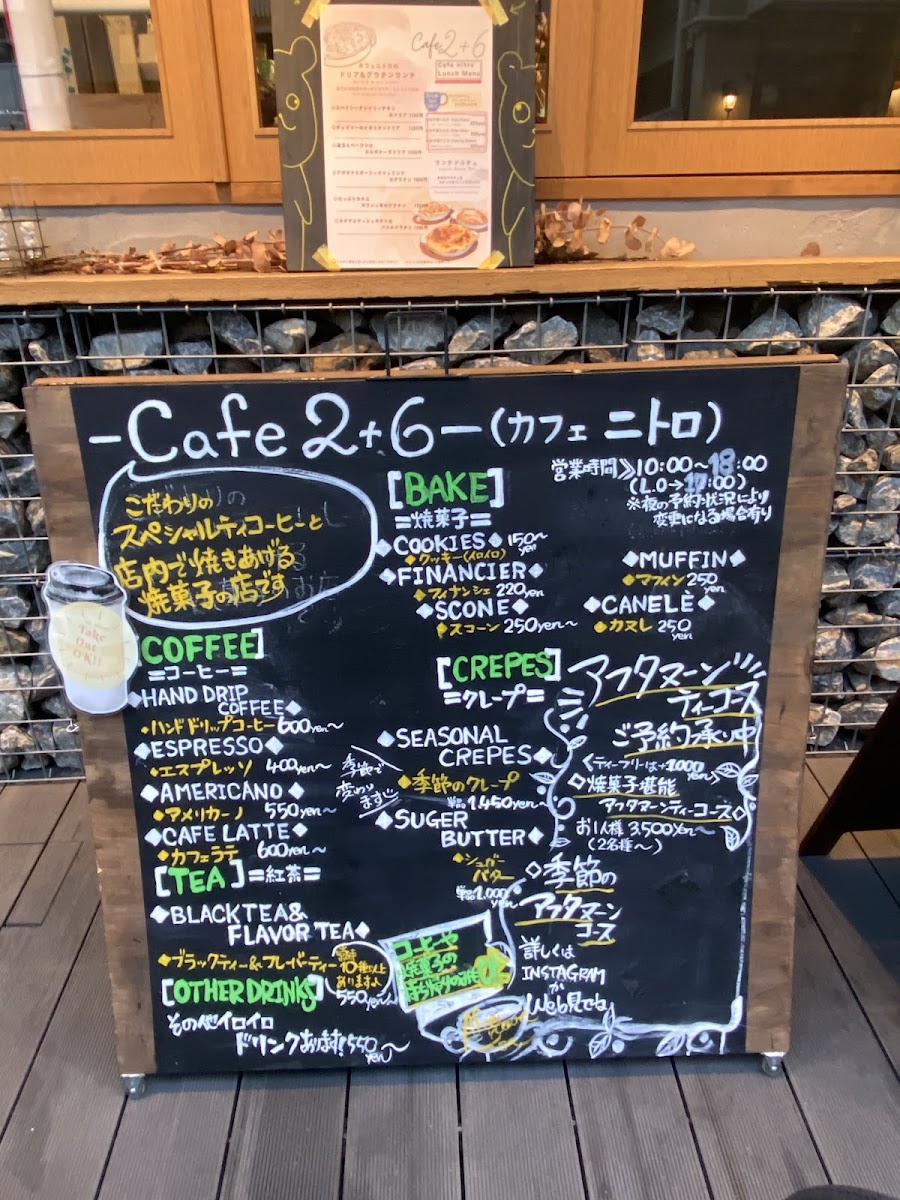 Cafe 2+6
Cafe nitro
Lunch Menu
ドリア&グラタンランチ
-Cafe 2+6-(カフェ ニトロ)
こだわりの
スペシャルティコーヒーと
店内で焼きあげる
焼菓子の店です
Take
Out
OK!!
[COFFEE]
=コーヒー=
◆HAND DRIP
COFFEE◆
◆ハンドドリップコーヒー 600yen~
◆ESPRESSO◆
◆エスプレッソ 400yen~
◆AMERICANO◆
◆アメリカーノ 550yen~
◆CAFE LATTE◆
◆カフェラテ 600yen~
[TEA]=紅茶=
◆BLACK TEA&
FLAVOR TEA◆
◆ブラックティー&フレーバーティー
10種以上
あります
550yen~
[OTHER DRINKS]
その他イロイロ
ドリンクあります!550yen~
[BAKE]
=焼菓子=
◆COOKIES◆150~yen
◆クッキー(イロイロ)
◆FINANCIER◆
◆フィナンシェ 220yen
◆SCONE◆
◆スコーン 250yen~
営業時間≫10:00~18:00
(L.O→17:00)
※夜の予約状況により
変更になる場合有り
◆MUFFIN◆
◆マフィン 250yen
◆CANELÈ◆
◆カヌレ 250yen
[CREPES]
=クレープ=
◆SEASONAL
CREPES◆
季節で
変わります
◆季節のクレープ
単品1,450yen~
◆SUGER
BUTTER◆
◆シュガー
バター
単品1,000yen~
アフタヌーン
ティーコース
ご予約承り中
<ティーフリーは+1000yen>
◇焼菓子堪能
アフタヌーンティーコース◇
お1人様 3,500yen~
(2名様~)
◇季節の
アフタヌーン
コース
詳しくは
INSTAGRAM
か
Web見てね
コーヒーや
焼菓子の
持ち帰りのみもOK